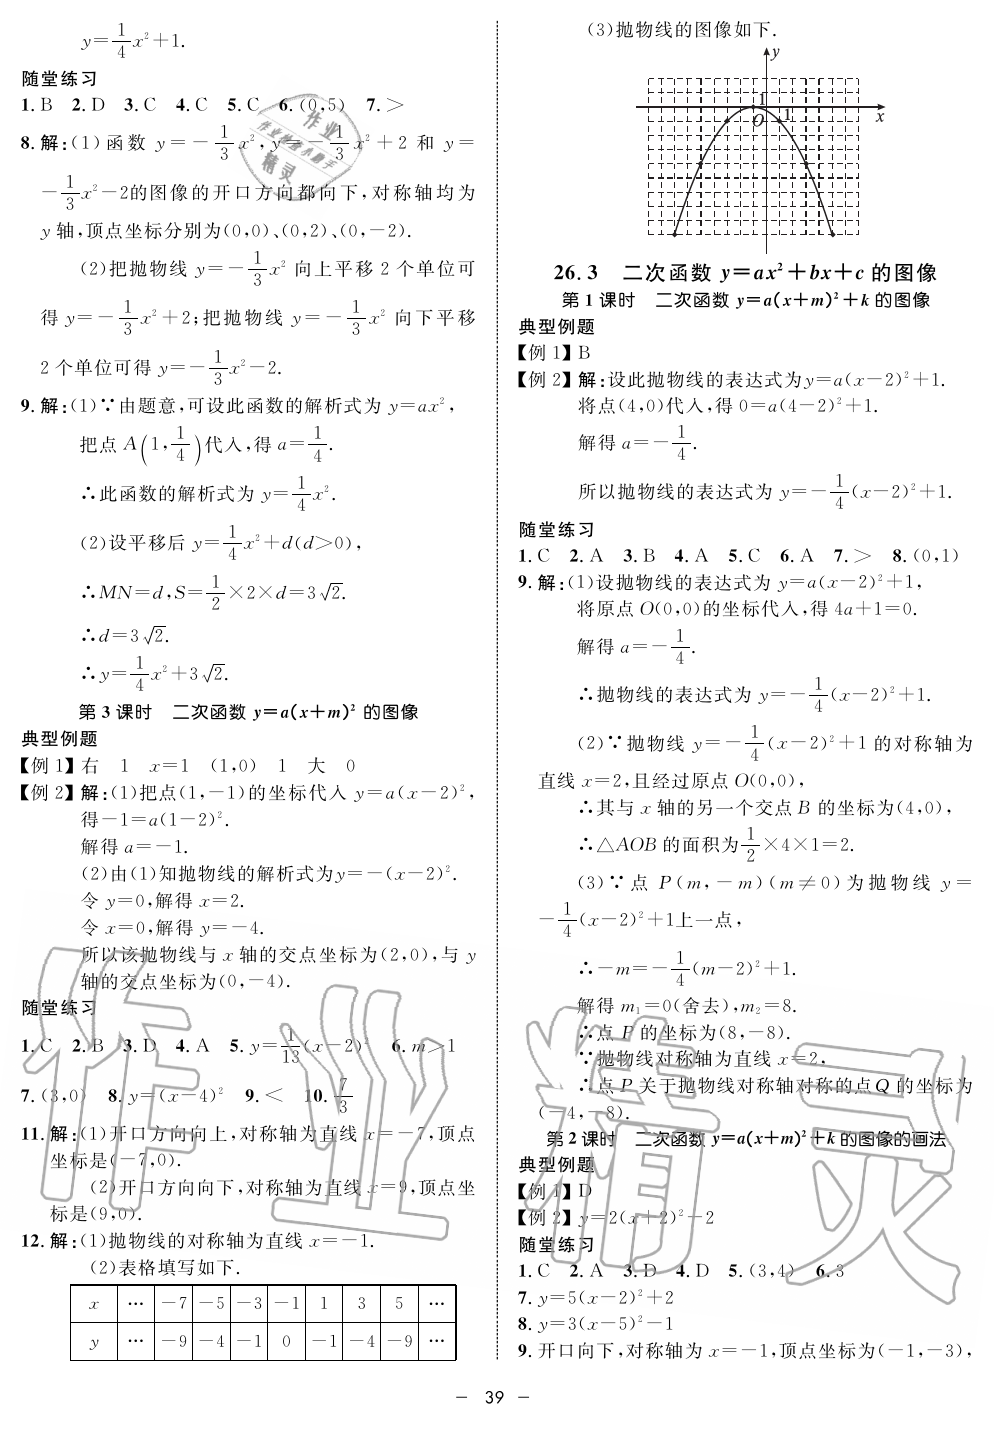 y=1/4x²+1.
随堂练习
1.B 2.D 3.C 4.C 5.C 6.(0,5) 7.>
8.解:(1)函数 y=-1/3x²,y=-1/3x²+2 和 y=
-1/3x²-2的图像的开口方向都向下,对称轴均为
y轴,顶点坐标分别为(0,0)、(0,2)、(0,-2).
(2)把抛物线 y=-1/3x² 向上平移 2 个单位可
得 y=-1/3x²+2;把抛物线 y=-1/3x² 向下平移
2个单位可得 y=-1/3x²-2.
9.解:(1)∵由题意,可设此函数的解析式为 y=ax²,
把点 A(1,1/4)代入,得 a=1/4.
∴此函数的解析式为 y=1/4x².
(2)设平移后 y=1/4x²+d(d>0),
∴MN=d,S=1/2×2×d=3√2.
∴d=3√2.
∴y=1/4x²+3√2.
第3课时 二次函数 y=a(x+m)² 的图像
典型例题
【例1】右 1 x=1 (1,0) 1 大 0
【例2】解:(1)把点(1,-1)的坐标代入 y=a(x-2)²,
得-1=a(1-2)².
解得 a=-1.
(2)由(1)知抛物线的解析式为y=-(x-2)².
令 y=0,解得 x=2.
令 x=0,解得 y=-4.
所以该抛物线与 x 轴的交点坐标为(2,0),与 y
轴的交点坐标为(0,-4).
随堂练习
1.C 2.B 3.D 4.A 5.y=1/13(x-2)² 6.m>1
7.(3,0) 8.y=(x-4)² 9.< 10.7/3
11.解:(1)开口方向向上,对称轴为直线 x=-7,顶点
坐标是(-7,0).
(2)开口方向向下,对称轴为直线 x=9,顶点坐
标是(9,0).
12.解:(1)抛物线的对称轴为直线 x=-1.
(2)表格填写如下.
x … -7 -5 -3 -1 1 3 5 …
y … -9 -4 -1 0 -1 -4 -9 …
(3)抛物线的图像如下.
y
1
O 1 x
26.3 二次函数 y=ax²+bx+c 的图像
第1课时 二次函数 y=a(x+m)²+k 的图像
典型例题
【例1】B
【例2】解:设此抛物线的表达式为y=a(x-2)²+1.
将点(4,0)代入,得 0=a(4-2)²+1.
解得 a=-1/4.
所以抛物线的表达式为 y=-1/4(x-2)²+1.
随堂练习
1.C 2.A 3.B 4.A 5.C 6.A 7.> 8.(0,1)
9.解:(1)设抛物线的表达式为 y=a(x-2)²+1,
将原点 O(0,0)的坐标代入,得 4a+1=0.
解得 a=-1/4.
∴抛物线的表达式为 y=-1/4(x-2)²+1.
(2)∵抛物线 y=-1/4(x-2)²+1 的对称轴为
直线 x=2,且经过原点 O(0,0),
∴其与 x 轴的另一个交点 B 的坐标为(4,0),
∴△AOB 的面积为1/2×4×1=2.
(3)∵点 P(m,-m)(m≠0)为抛物线 y=
-1/4(x-2)²+1上一点,
∴-m=-1/4(m-2)²+1.
解得 m₁=0(舍去),m₂=8.
∴点 P 的坐标为(8,-8).
∵抛物线对称轴为直线 x=2,
∴点 P 关于抛物线对称轴对称的点Q 的坐标为
(-4,-8).
第2课时 二次函数 y=a(x+m)²+k的图像的画法
典型例题
【例1】D
【例2】y=2(x+2)²-2
随堂练习
1.C 2.A 3.D 4.D 5.(3,4) 6.3
7.y=5(x-2)²+2
8.y=3(x-5)²-1
9.开口向下,对称轴为 x=-1,顶点坐标为(-1,-3),
— 39 —
作业精灵